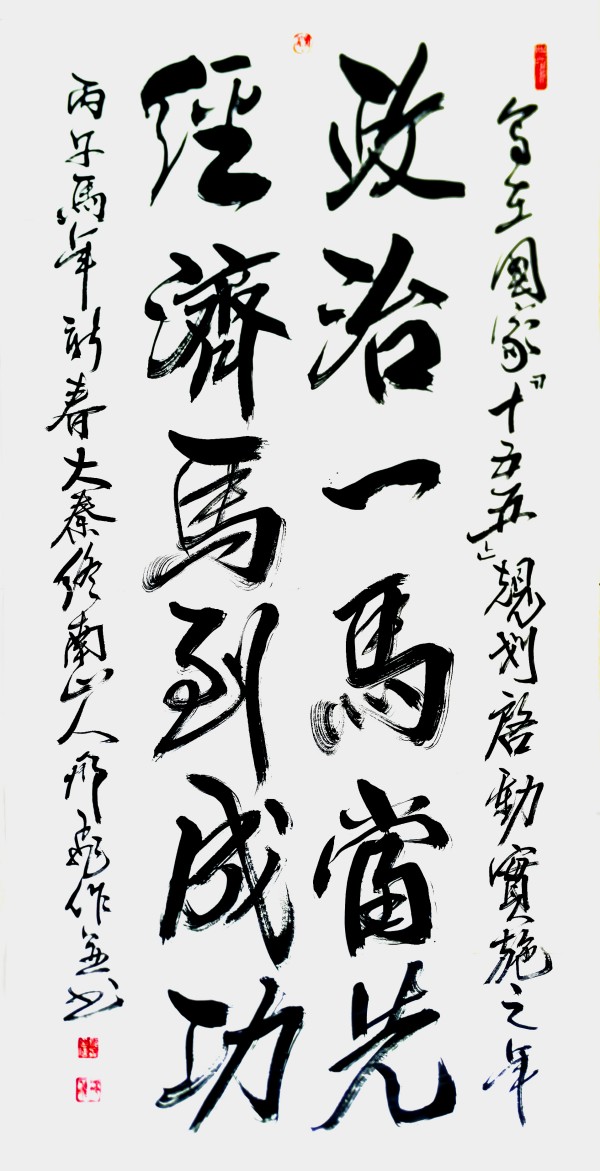 写在國家「十五五」規划啓動實施之年
政治一馬當先
經濟馬到成功
丙午馬年新春大秦終南山人邢作並书